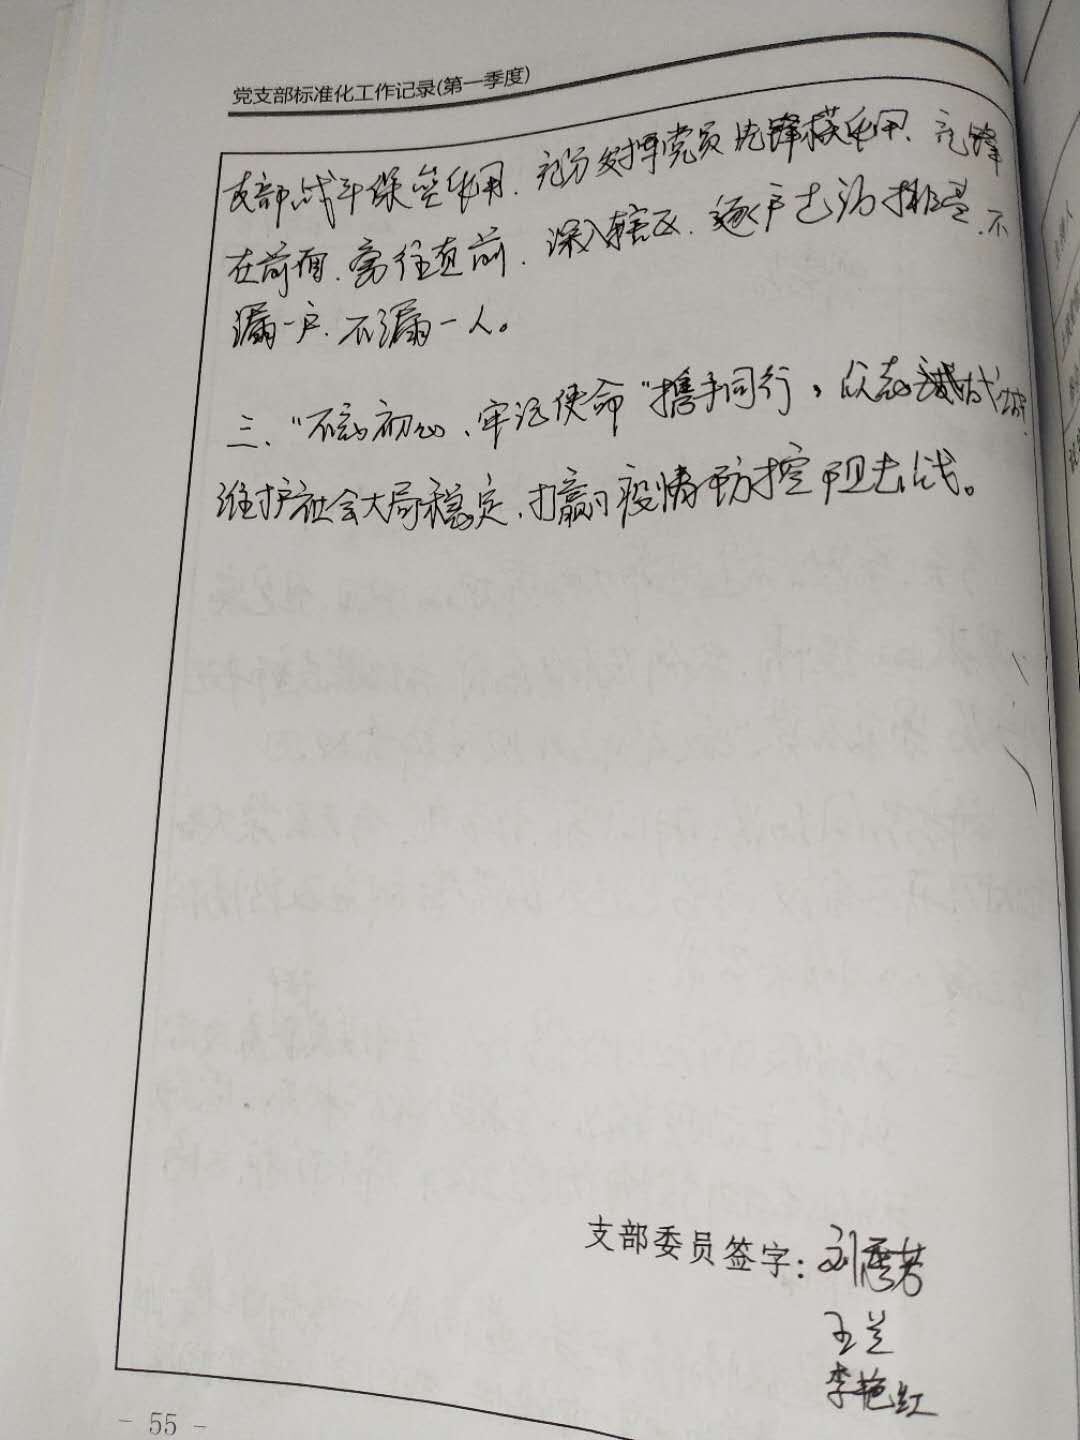 党支部标准化工作记录(第一季度)
支部战斗保垒作用.充分发挥党员先锋模作用、
在前面.勇往直前.深入辖区.逐户走访排查.不
漏一户.不漏一人。
三、"不忘初心、牢记使命"携手同行,众志成城
维护社会大局稳定.打赢疫情防控阻击战。
支部委员签字:刘秀芳
王兰
李艳红
- 55 -